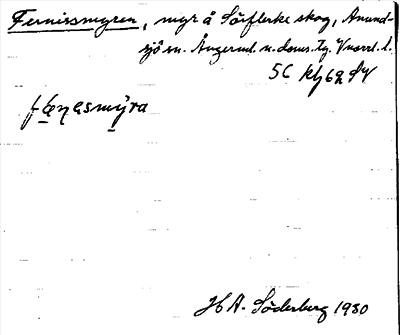 Fernissmyren, myr å Sörflerke skog, Anund-
sjö sn. Ångerml. n. doms. Tg. V norrl. l.
56 kbg 62
fænasmýra
H A. Söderberg 1930